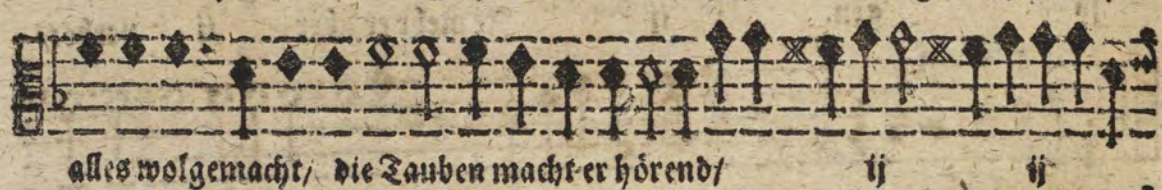 alles wolgemacht/ die Tauben macht er hörend/ ij ij